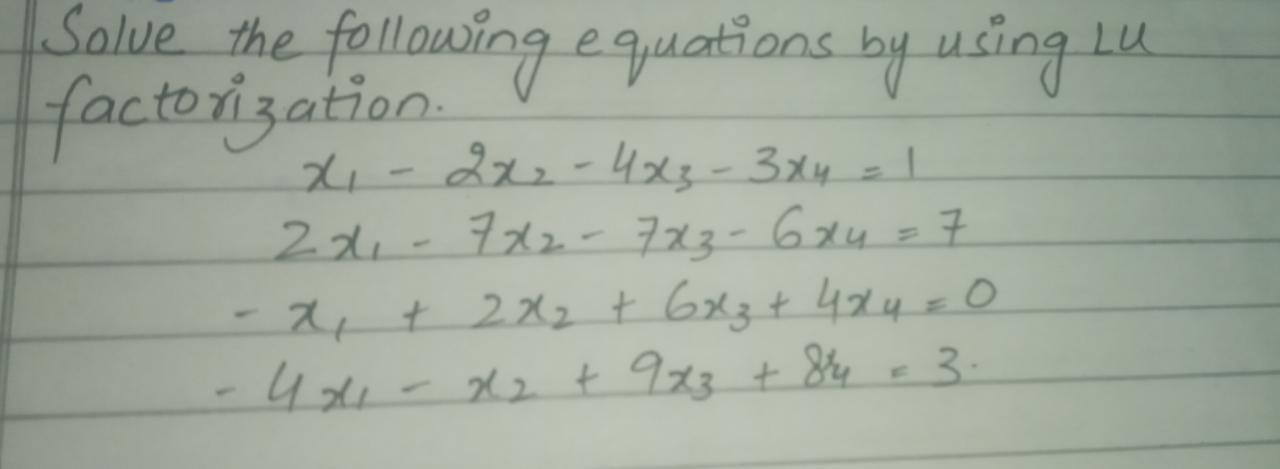 Solve the following equations by using LU
factorization.
x₁ - 2x₂ - 4x₃ - 3x₄ = 1
2x₁ - 7x₂ - 7x₃ - 6x₄ = 7
- x₁ + 2x₂ + 6x₃ + 4x₄ = 0
- 4x₁ - x₂ + 9x₃ + 8x₄ = 3.